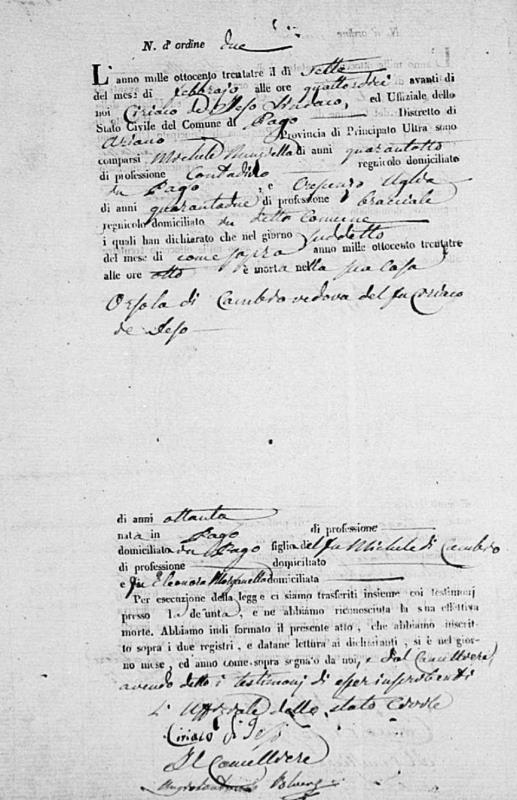 N. d'ordine due
L'anno mille ottocento trentatre il dì sette
del mese di febbrajo alle ore quattordici avanti di
noi Ciriaco de Deso Sindaco, ed Uffiziale dello
Stato Civile del Comune di Pago Distretto di
Ariano Provincia di Principato Ultra sono
comparsi Michele di anni quarantotto
di professione Contadino regnicolo domiciliato
in Pago, e di anni quarantadue di professione bracciale
regnicolo domiciliato in detto Comune
i quali han dichiarato che nel giorno suddetto
del mese di come sopra anno mille ottocento trentatre
alle ore otto è morta nella sua casa
Orsola di Cambro vedova del fu Ciriaco
de Deso
di anni ottanta
nata in Pago di professione
domiciliato in Pago figlia del fu Michele di Cambro
di professione domiciliato
e fu Eleonora domiciliata
Per esecuzione della legge ci siamo trasferiti insieme coi testimonj
presso la defunta, e ne abbiamo riconosciuta la sua effettiva
morte. Abbiamo indi formato il presente atto, che abbiamo inscrit-
to sopra i due registri, e datane lettura ai dichiaranti, si è nel gior-
no mese, ed anno come sopra segnato da noi, e dal Cancelliere,
avendo detto i testimonj di esser inscribenti
L'Uffiziale dello stato Civile
Ciriaco
Il Cancelliere